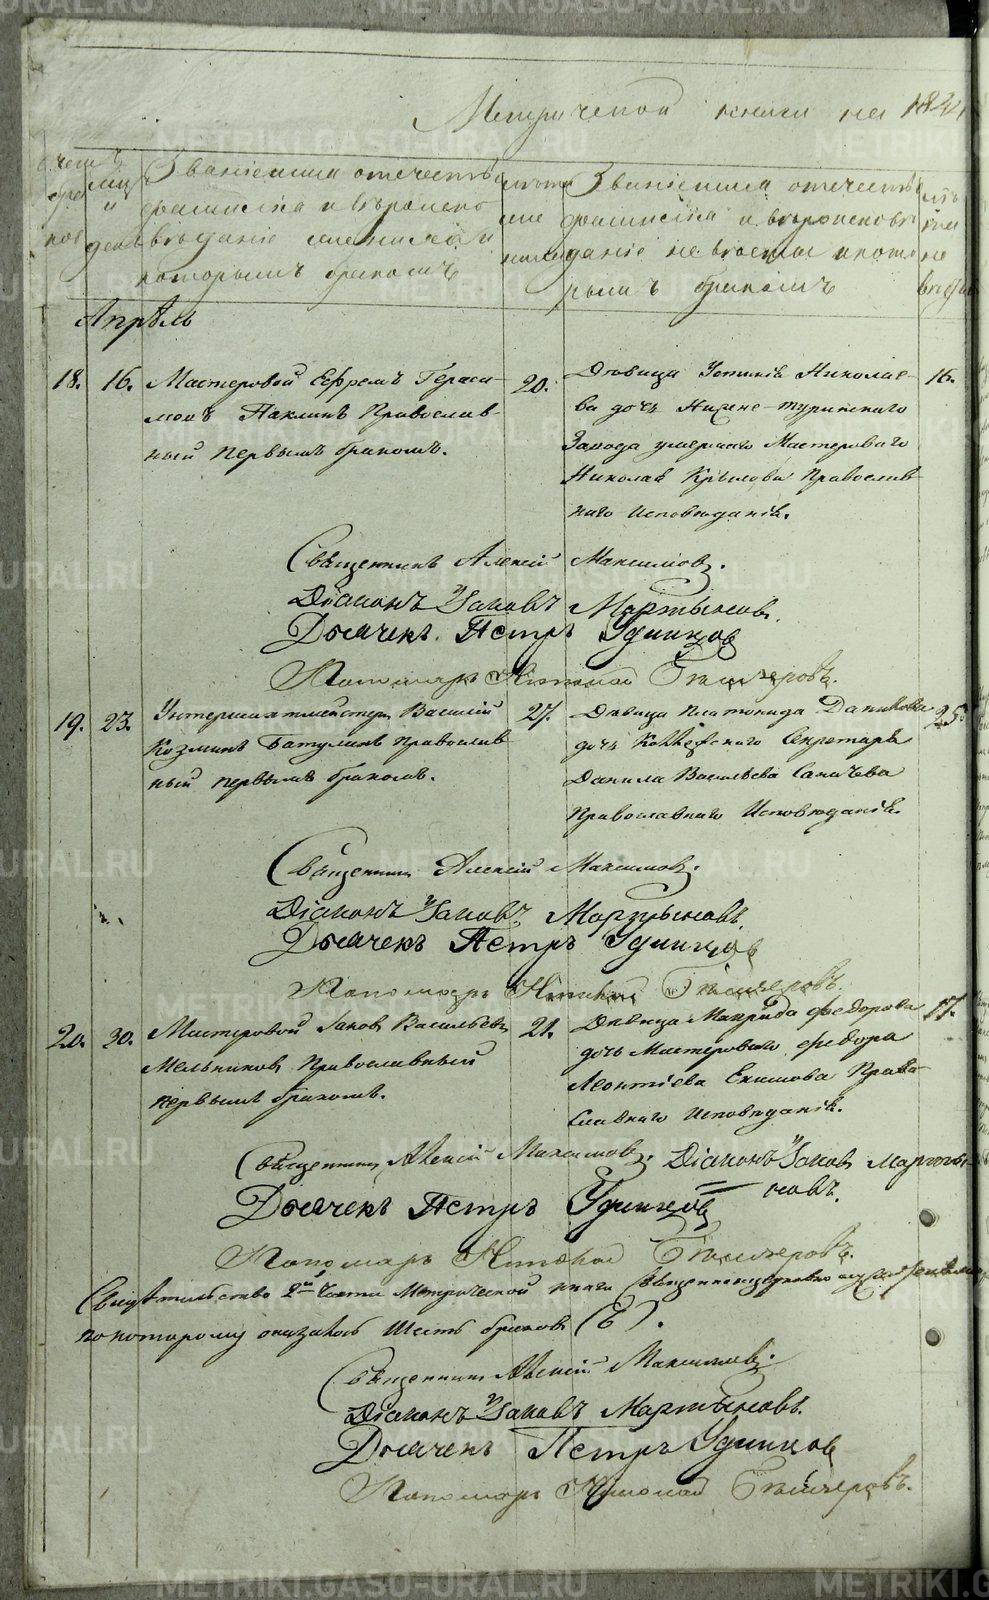 Метрической книги на 183
Званіе имя отечество
фамилія и вѣроиспо
вѣданіе жениха и
которымъ бракомъ
Званіе имя отечество
фамилія и вѣроисповѣ
даніе невѣсты и кото
рымъ бракомъ
Апрѣль
18. 16. Мастеровой Ефремъ Гераси-
мовъ Паклинъ Православ-
ный первымъ бракомъ.
20.
Дѣвица Устинія Николае-
ва дочь Нижне-туринскаго
Завода умершаго Мастероваго
Николая Крылова Православ-
наго исповѣданія.
16.
Священникъ Алексій Максимовъ.
Діаконъ Іаковъ Мартыновъ.
Дьячекъ Петръ Удинцов
Пономарь Николай
19. 23. Унтершихтмейстер Василій
Козминъ Батулинъ православ
ный первымъ бракомъ.
27.
Дѣвица Платонида Данилова
дочь Коллежскаго Секретаря
Данила Васильева
Православнаго Исповѣданія.
25.
Священникъ Алексій Максимовъ.
Діаконъ Іаковъ Мартыновъ.
Дьячекъ Петръ Удинцов
Пономарь Николай
20. 30. Мастеровой Іаков Васильев
Мельников Православный
первымъ бракомъ.
21.
Дѣвица Маврида федорова
дочь Мастероваго федора
Леонтіева Екимова Право-
славнаго исповѣданія.
17.
Священникъ Алексій Максимовъ. Діаконъ Іаков Марты-
новъ.
Дьячекъ Петръ Удинцов
Пономарь Николай
Свидѣтельство 2й части Метрической книги Священноцерковнослужителями
по которому оказалось Шесть браков (6).
Священникъ Алексій Максимовъ.
Діаконъ Іаковъ Мартыновъ.
Дьячекъ Петръ Удинцов
Пономарь Николай
METRIKI.GASO-URAL.RU